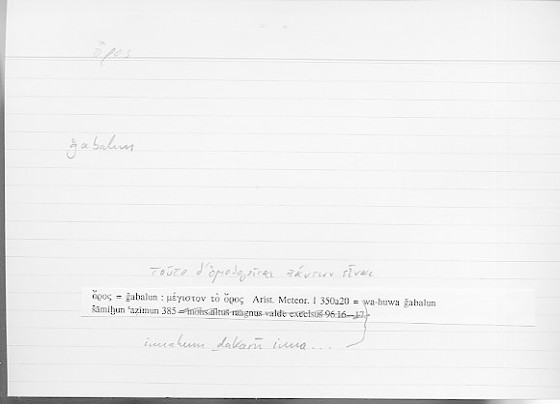 ὄρος
ǧabalun
τοῦτο δ' ὁμολογεῖται πάντων εἶναι
ὄρος = ǧabalun : μέγιστον τὸ ὄρος Arist. Meteor. I 350a20 = wa-huwa ǧabalun
šāmiḫun ʿaẓīmun 385 = mons altus magnus valde excelsus 96 16–17
innahum ḏakarū inna...